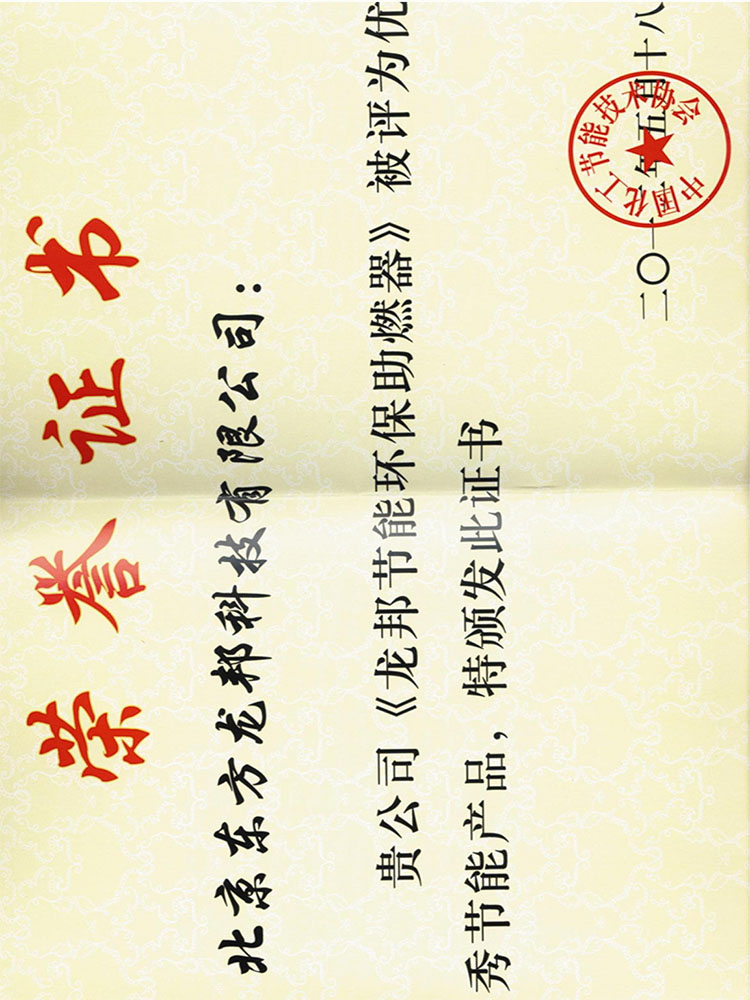 荣誉证书
北京东方龙邦科技有限公司：
贵公司《龙邦节能环保助燃器》被评为优
秀节能产品，特颁发此证书
中国化工节能技术协会
二〇一一年五月十八